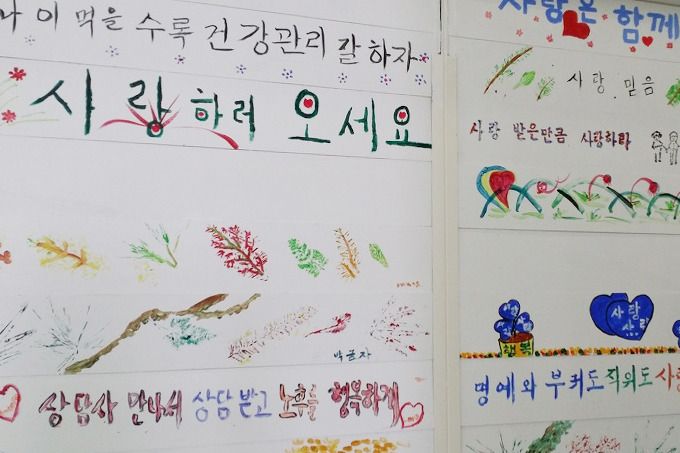 나이 먹을수록 건강관리 잘하자
사랑하러 오세요
박금자
상담사 만나서 상담받고 노후를 행복하게
사랑은 함께
사랑 믿음
사랑 받은만큼 사랑하라
사랑
행복
사랑
사랑
명예와 부귀도 직위도